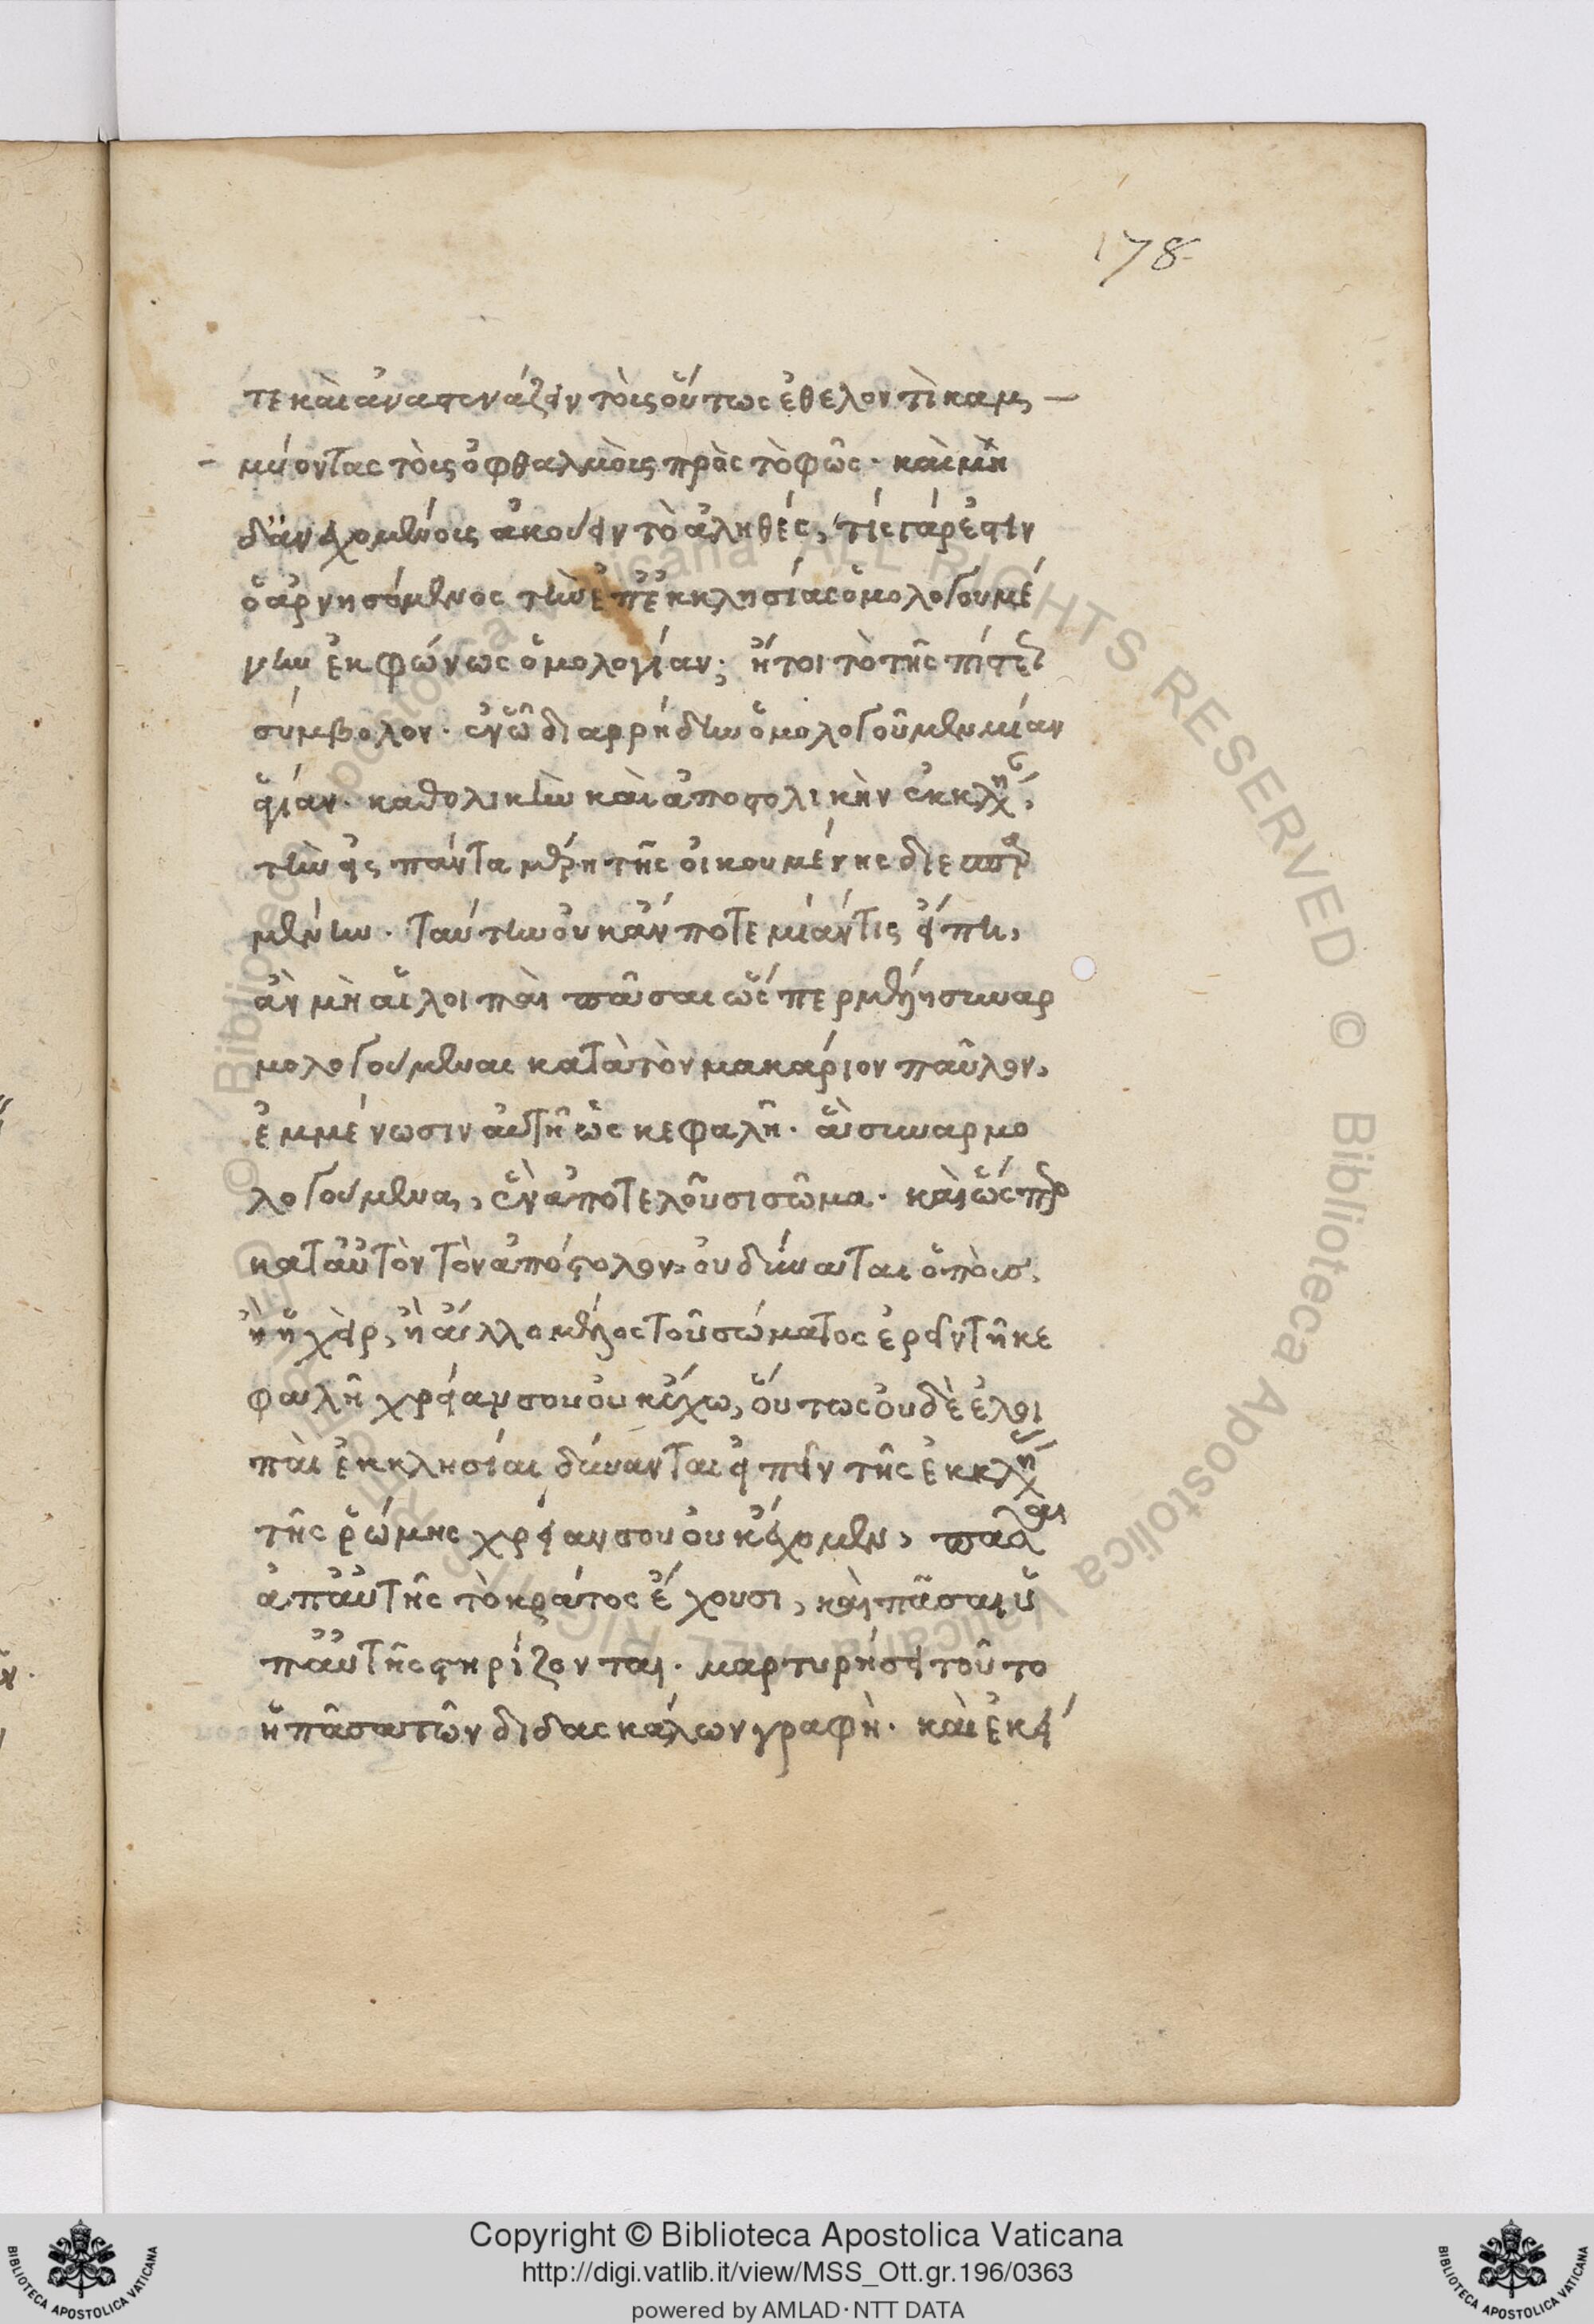 178
τε καὶ ἀναστενάζειν τοῖς οὕτως ἐθελοντὶ καμ
μύοντας τοῖς ὀφθαλμοῖς πρὸς τὸ φῶς · καὶ μὴ
δ' ἀνεχομένοις ἀκούειν τὸ ἀληθές, τίς γάρ ἐστιν
ὁ ἀρνησόμενος τὴν ἐπ' ἐκκλησίας ὁμολογουμέ
νην ἐκφώνως ὁμολογίαν; ἤτοι τὸ τῆς πίστεως
σύμβολον · ἐν ᾧ διαρρήδην ὁμολογοῦμεν μίαν
ἁγίαν · καθολικὴν καὶ ἀποστολικὴν ἐκκλη,
τὴν εἰς πάντα μέρη τῆς οἰκουμένης διεσπαρ
μένην · ταύτην οὐκ ἄν ποτε μίαν τις εἴπῃ,
ἂν μὴ αἱ λοιπαὶ πᾶσαι ὥσπερ μέλη συναρ
μολογούμεναι κατὰ τὸν μακάριον παῦλον,
ἐμμένωσιν αὐτῇ ὡς κεφαλῇ · αἳ συναρμο
λογούμεναι, ἓν ἀποτελοῦσι σῶμα · καὶ ὥσπερ
κατ' αὐτὸν τὸν ἀπόστολον οὐ δύναται ὁ ποῦς,
ἢ ἡ χεὶρ, ἢ ἄλλο μέλος τοῦ σώματος ἐρεῖν τῇ κε
φαλῇ χρείαν σου οὐκ ἔχω, οὕτως οὐδὲ αἱ λοι
παὶ ἐκκλησίαι δύνανται εἰπεῖν τῆς ἐκκλη
τῆς ῥώμης χρείαν σου οὐκ ἔχομεν, πᾶσαι
ἀπ' αὐτῆς τὸ κράτος ἔχουσι, καὶ πᾶσαι ὑ
π' αὐτῆς στηρίζονται · μαρτυρήσει τοῦτο
ἡ πᾶσα τῶν διδασκάλων γραφὴ · καὶ ἐκεί
Copyright © Biblioteca Apostolica Vaticana
http://digi.vatlib.it/view/MSS_Ott.gr.196/0363
powered by AMLAD·NTT DATA
BIBLIOTECA APOSTOLICA VATICANA
BIBLIOTECA APOSTOLICA VATICANA
© Biblioteca Apostolica Vaticana ALL RIGHTS RESERVED